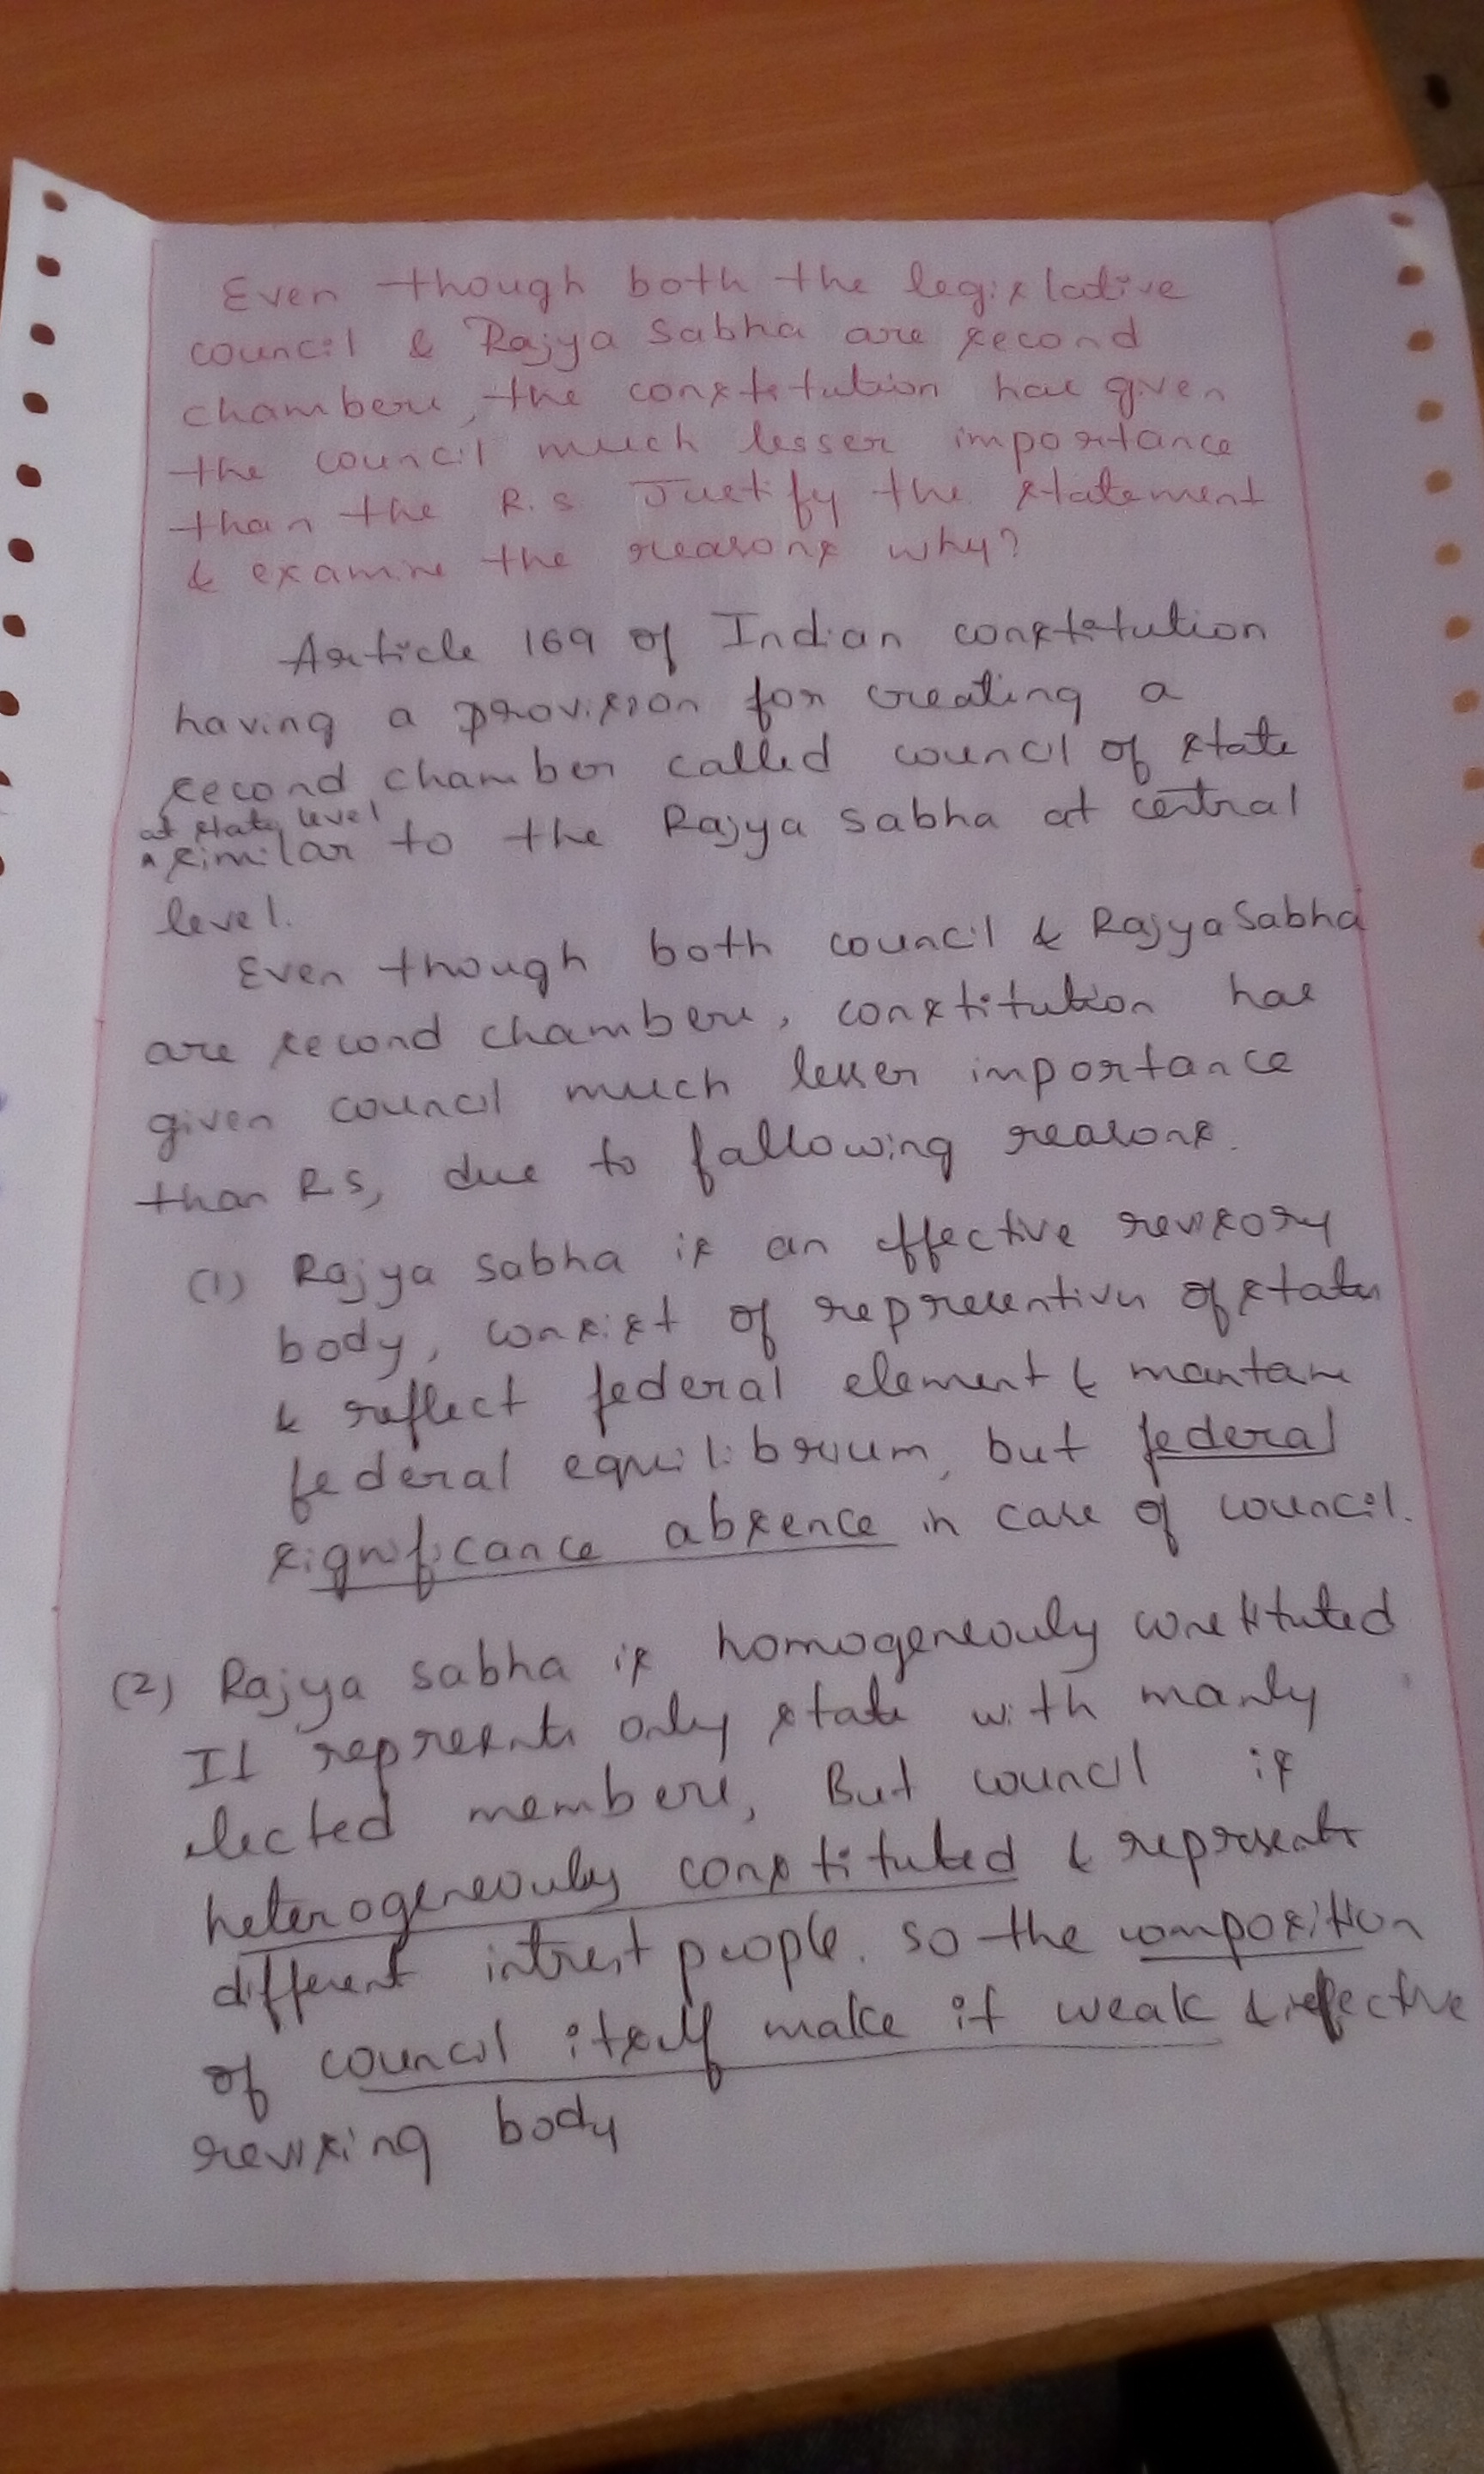 Even though both the legislative
council & Rajya Sabha are second
chambers, the constitution has given
the council much lesser importance
than the R.S Justify the statement
& examine the reasons why?
Article 169 of Indian constitution
having a provision for creating a
second chamber called council of state
at state level
^ similar to the Rajya Sabha at central
level.
Even though both council & Rajya Sabha
are second chambers, constitution has
given council much lesser importance
than R.S, due to fallowing reasons.
(1) Rajya Sabha is an effective revisory
body, consist of representives of states
& reflect federal element & mantain
federal equilibrium, but federal
significance absence in case of council.
(2) Rajya Sabha is homogeneously constituted
It represents only state with manly
elected members, But council is
heterogeneously constituted & represents
different intrest people. so the composition
of council itself make it weak & ineffective
revising body